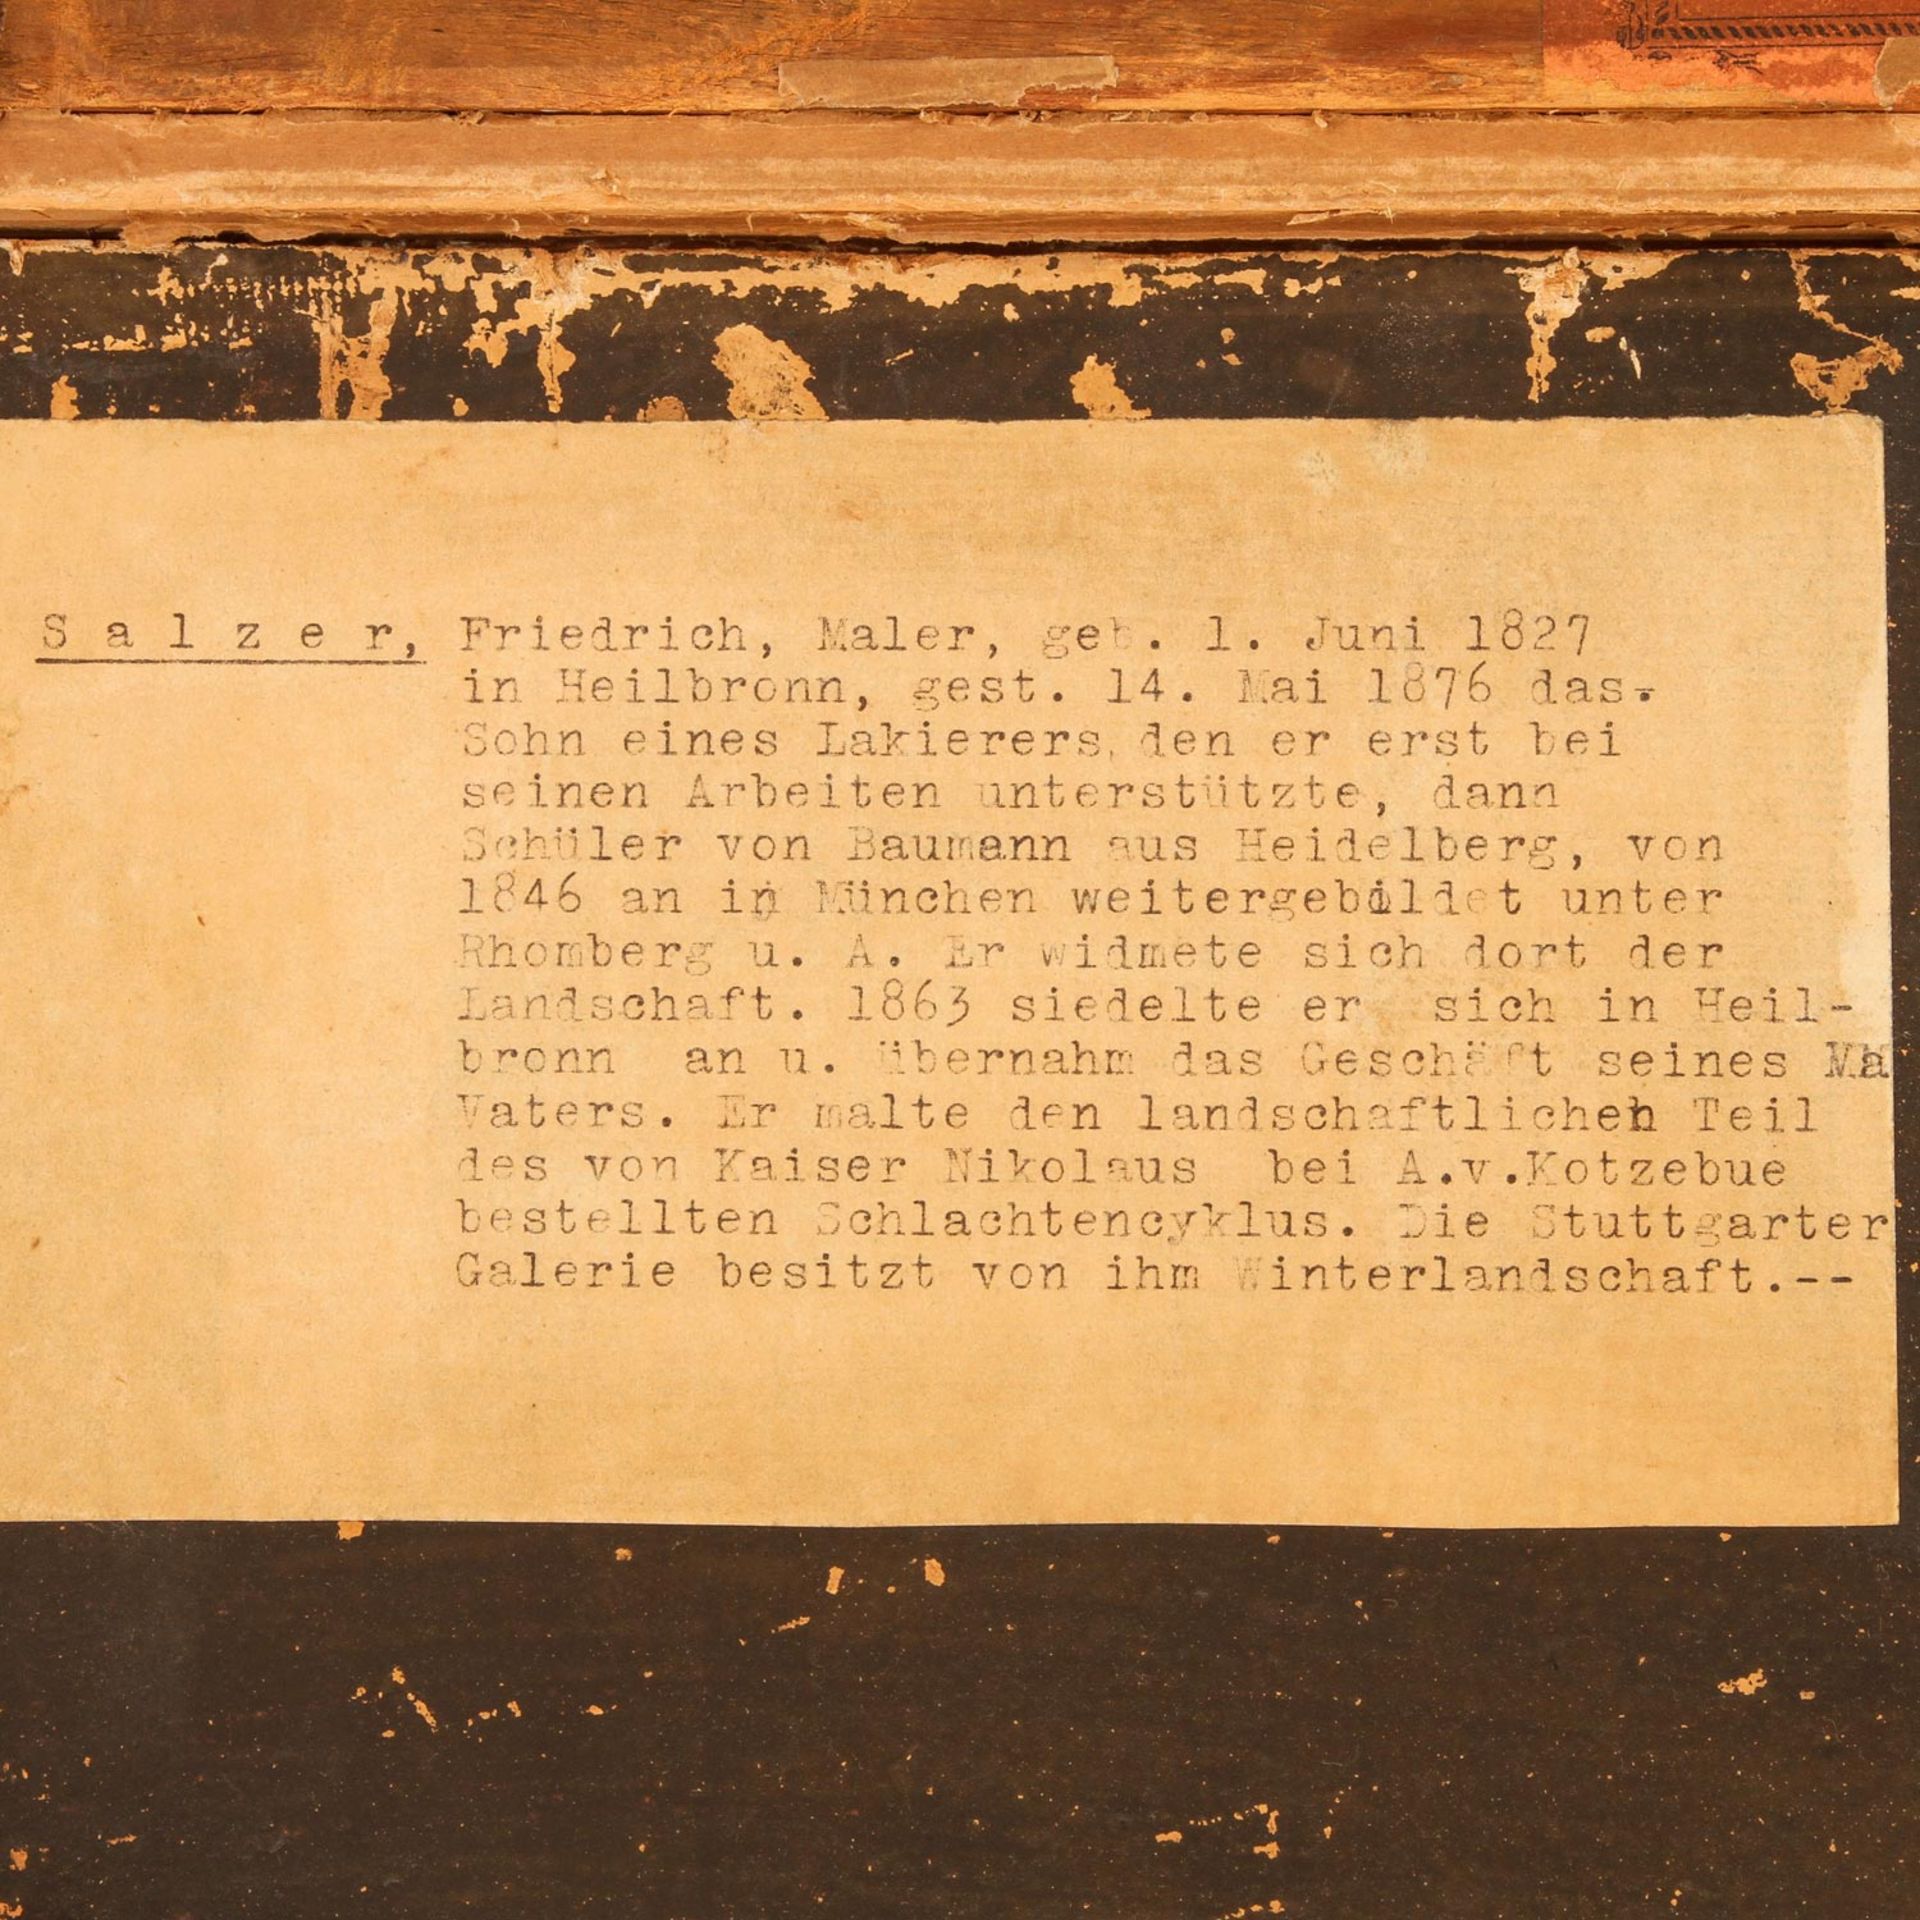 S a l z e r, Friedrich, Maler, geb. 1. Juni 1827
in Heilbronn, gest. 14. Mai 1876 das.
Sohn eines Lakierers, den er erst bei
seinen Arbeiten unterstützte, dann
Schüler von Baumann aus Heidelberg, von
1846 an in München weitergebildet unter
Rhomberg u. A. Er widmete sich dort der
Landschaft. 1863 siedelte er sich in Heil-
bronn an u. übernahm das Geschäft seines Ma
Vaters. Er malte den landschaftlichen Teil
des von Kaiser Nikolaus bei A.v.Kotzebue
bestellten Schlachtencyklus. Die Stuttgarter
Galerie besitzt von ihm Winterlandschaft.--